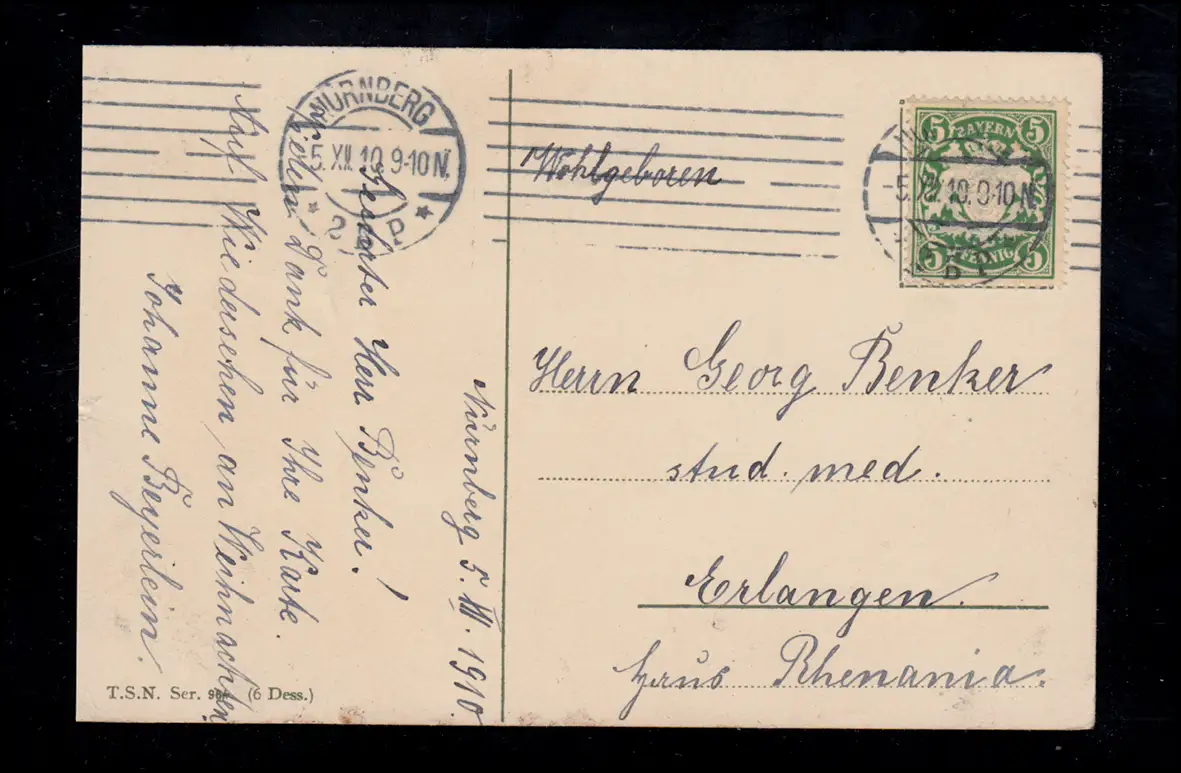 Nürnberg 5. XII. 1910.
Geehrter Herr Benker!
Vielen Dank für Ihre Karte.
Auf Wiedersehen an Weihnachten
Johanne Beyerlein.
T.S.N. Ser. (6 Dess.)
NÜRNBERG
5. XII. 10. 9-10 N.
2 P
Wohlgeboren
BAYERN
5 5
5. XII. 10. 9-10 N.
PFENNIG
5 5
Herrn Georg Benker
stud. med.
Erlangen.
Haus Rhenania.